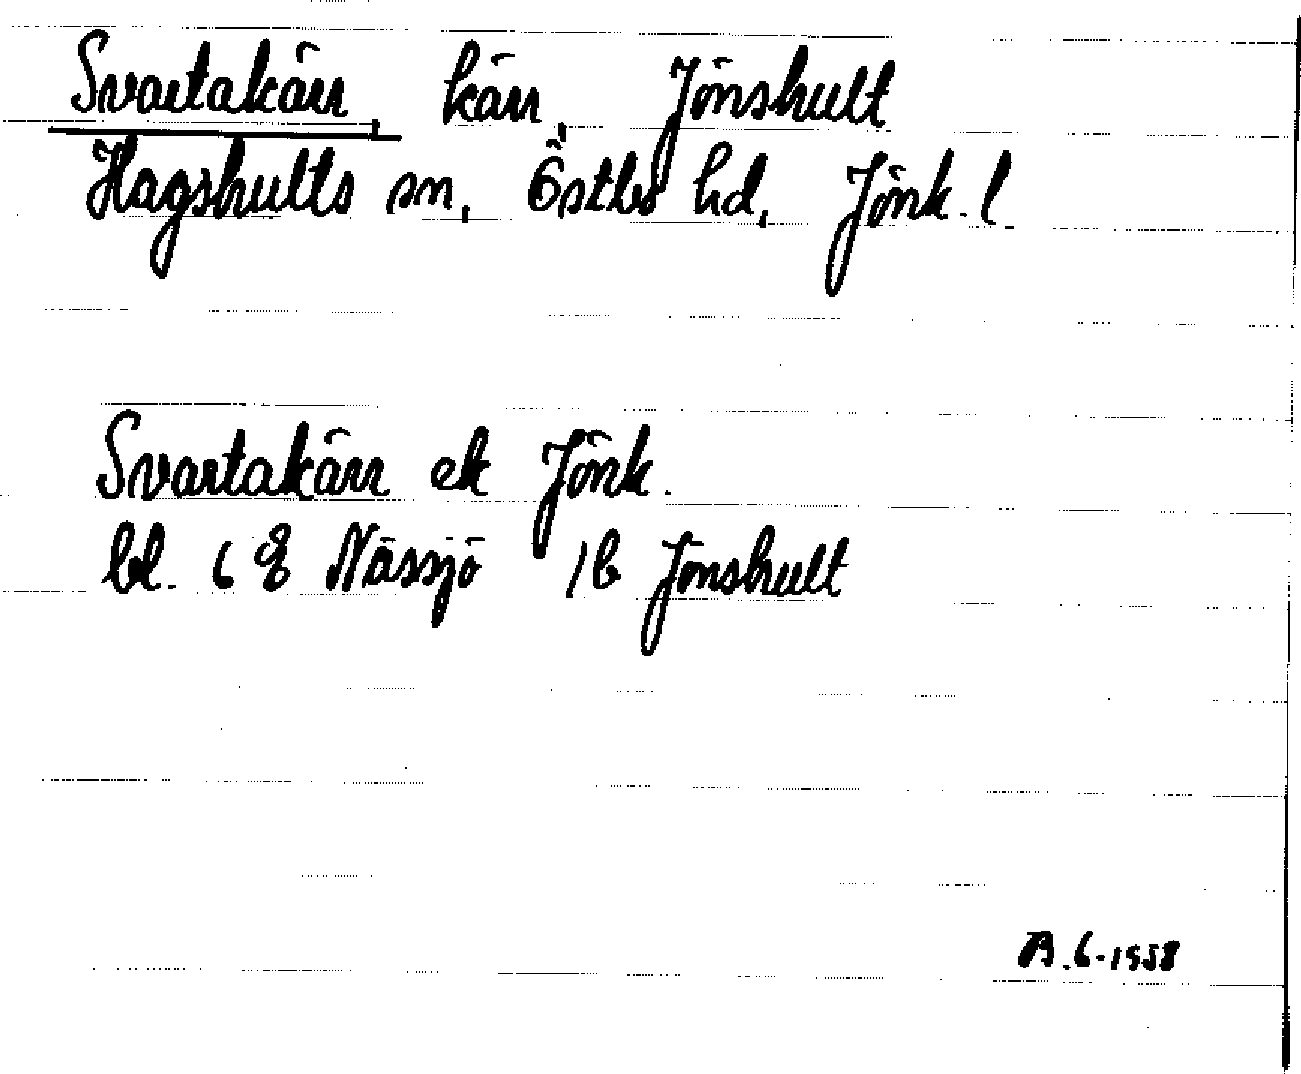 Svartakärr, kärr, Jönshult
Hagshults sn, Östbo hd, Jönk. l.
Svartakärr ek Jönk.
bl. 6 E Nässjö 1b Jönshult
A.G. 1958